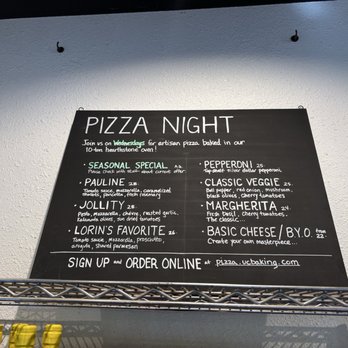 PIZZA NIGHT
Join us on Wednesdays for artisan pizza baked in our
10-ton hearthstone oven!
· SEASONAL SPECIAL A.Q.
Please check with staff about current offer
· PAULINE 28.
Tomato sauce, mozzarella, caramelized
tomato, pancetta, fresh rosemary
· JOLLITY 28.
Pesto, mozzarella, chevre, roasted garlic,
Kalamata olives, sun dried tomatoes
· LORIN'S FAVORITE 26.
Tomato sauce, mozzarella, prosciutto,
arugula, shaved parmesan
· PEPPERONI 25.
Top-shelf silver dollar pepperoni
· CLASSIC VEGGIE 25.
Bell pepper, red onion, mushroom,
black olives, cherry tomatoes
· MARGHERITA 24.
Fresh basil, cherry tomatoes.
The classic.
· BASIC CHEESE / B.Y.O. from
22.
Create your own masterpiece...
SIGN UP and ORDER ONLINE at pizza.ucbaking.com